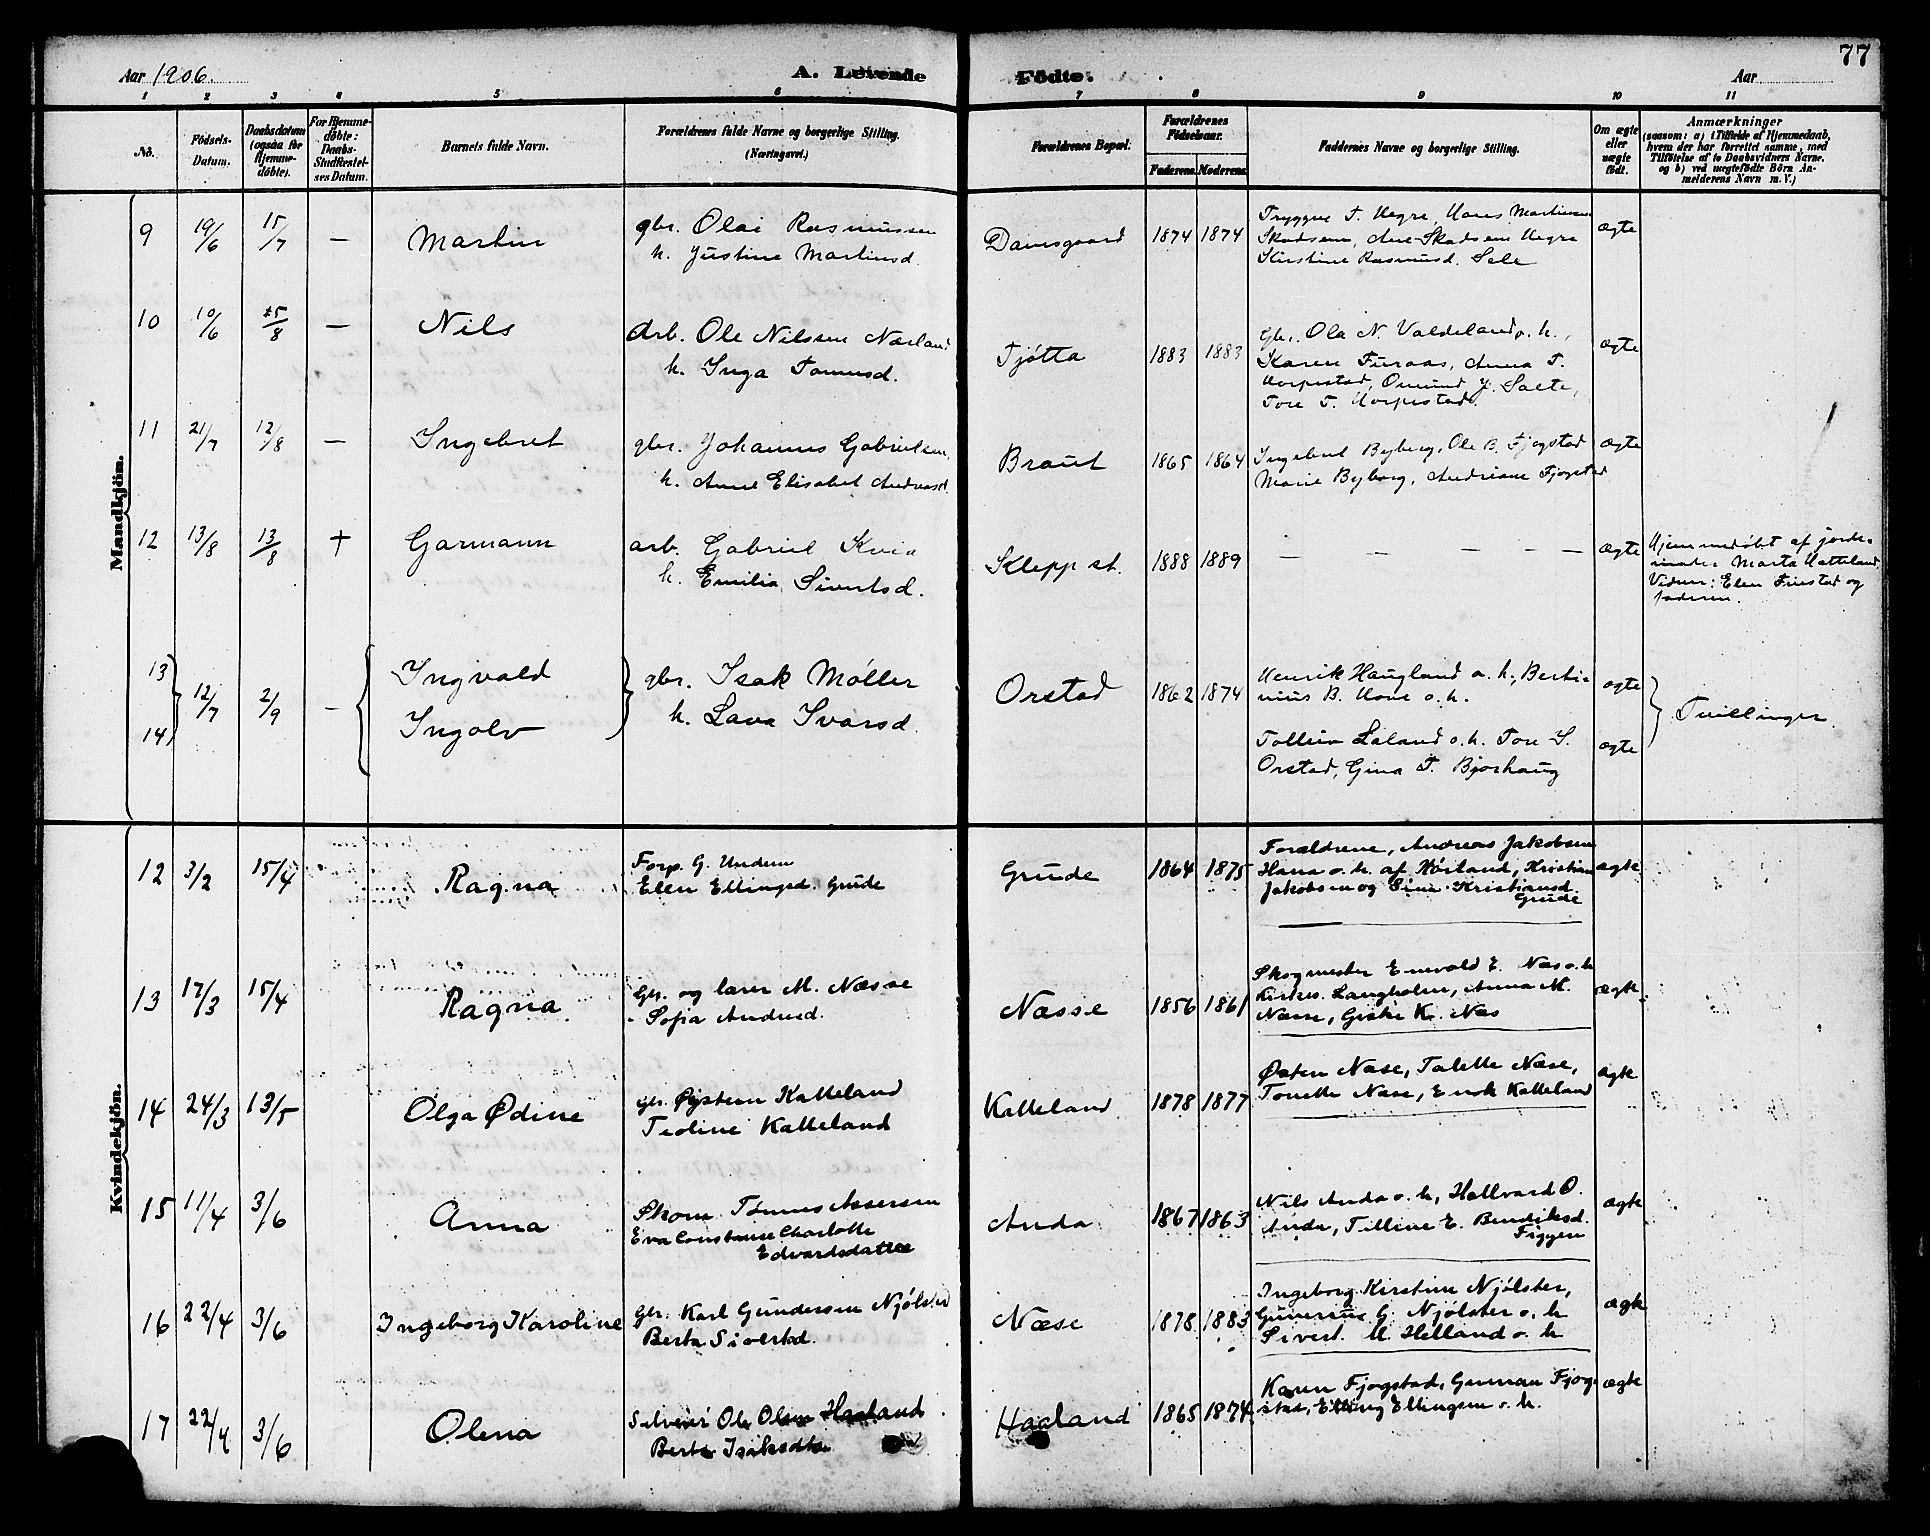 Aar 1906.
A. Levende Födte.
Aar
77
1 2 3 4 5 6 7 8 9 10 11
No.
Födsels-Datum.
Daabsdatum (ogsaa for Hjemme-döbte).
For Hjemme-döbte: Daabs-Stadfæstel-ses Datum.
Barnets fulde Navn.
Forældrenes fulde Navne og borgerlige Stilling. (Næringsvei.)
Forældrenes Bopæl.
Forældrenes Födselsaar.
Faderens. Moderens.
Faddernes Navne og borgerlige Stilling.
Om ægte eller uægte födt.
Anmærkninger
(saasom: a) i Tilfælde af Hjemmedaab, hvem der har forrettet samme, med Tilföielse af to Daabsvidners Navne, og b) ved uægtefödte Börn Anmelderens Navn m. V.)
Mandkjön.
9 19/6 15/7 — Martin
gbr. Olai Rasmussen
h. Justine Martinsd.
Damsgaard 1874 1874
Tryggve T. Hegre, Hans Martinsen
Skadsem, Ane Skadsem Hegre
Kirstine Rasmusd. Sele
ægte
10 10/6 15/8 — Nils
Arb. Ole Nilsen Nærland
h. Inga Tonnesd.
Tjøtta 1883 1883
Gbr. Ola N. Valdeland o. h.,
Karen Furaas, Anna T.
Horpestad, Omund J. Salte,
Tore T. Horpestad.
ægte
11 21/7 12/8 — Ingebret
gbr. Johannes Gabrielsen,
h. Anne Elisabet Andreasd.
Braut 1865 1864
Ingebret Byberg, Ole B. Fjogstad
Marie Byberg, Andriane Fjogstad
ægte
12 13/8 13/8 + Garmann
arb. Gabriel Kvia
h. Emilia Sivertsd.
Klepp st. 1888 1889
— — — — —
ægte
Hjemmedøbt af jorde-
moder Marta Hatteland
Vidner: Elen Finstad og
faderen.
13
14
12/7 2/9 —
Ingvald
Ingolv
gbr. Isak Møller
h. Lava Ivarsd.
Orstad 1862 1874
Henrik Haugland o. h., Berti-
nius B. Hove o. h.
ægte
Tolleiv Laland o. h. Tore S.
Orstad, Gina T. Bjorhaug
ægte
Tvillinger.
Kvindekjön.
12 3/2 15/4 Ragna
Forp. G. Undem
Elen Ellingsd. Grude
Grude 1864 1875
Forældrene, Andreas Jakobsen
Hana o. h. af Høiland, Kristian
Jakobsen og Sina Kristiansd.
Grude
ægte
13 17/3 15/4 Ragna.
Gbr. og lærer M. Næsse
- Sofia Andersd.
Næsse 1856 1861
Skogmester Enevald E. Næs o. h
Kirkes. Langholm, Anna M.
Næsse, Giske K. Næs
ægte
14 24/3 13/5 Olga Ødine
gbr. Øystein Katteland
Teoline Katteland
Katteland 1878 1877
Østen Næse, Talette Næse,
Tonette Næse, Enok Katteland
ægte
15 11/4 3/6 Anna
Skom. Tønnes Assersen
Eva Constanse Charlotte
Edvardsdatter
Anda 1867 1863
Nils Anda o. h, Hallvard O.
Anda, Tilline E. Bendiksd.
Figgen
ægte
16 22/4 3/6 Ingeborg Karoline
Gbr. Karl Gundersen Njølstad
Berta Sivertsd.
Næse 1878 1883
Ingeborg Kirstine Njølster,
Gunerius G. Njølster o. h
Sivert M. Helland o. h
ægte
17 22/4 3/6 Olena
Selveier Ole Olsen Haaland
Berta Isaksdtr
Haaland 1865 1874
Karen Fjogstad, Gunnar Fjog-
stad, Elling Ellingsen o. h.
ægte